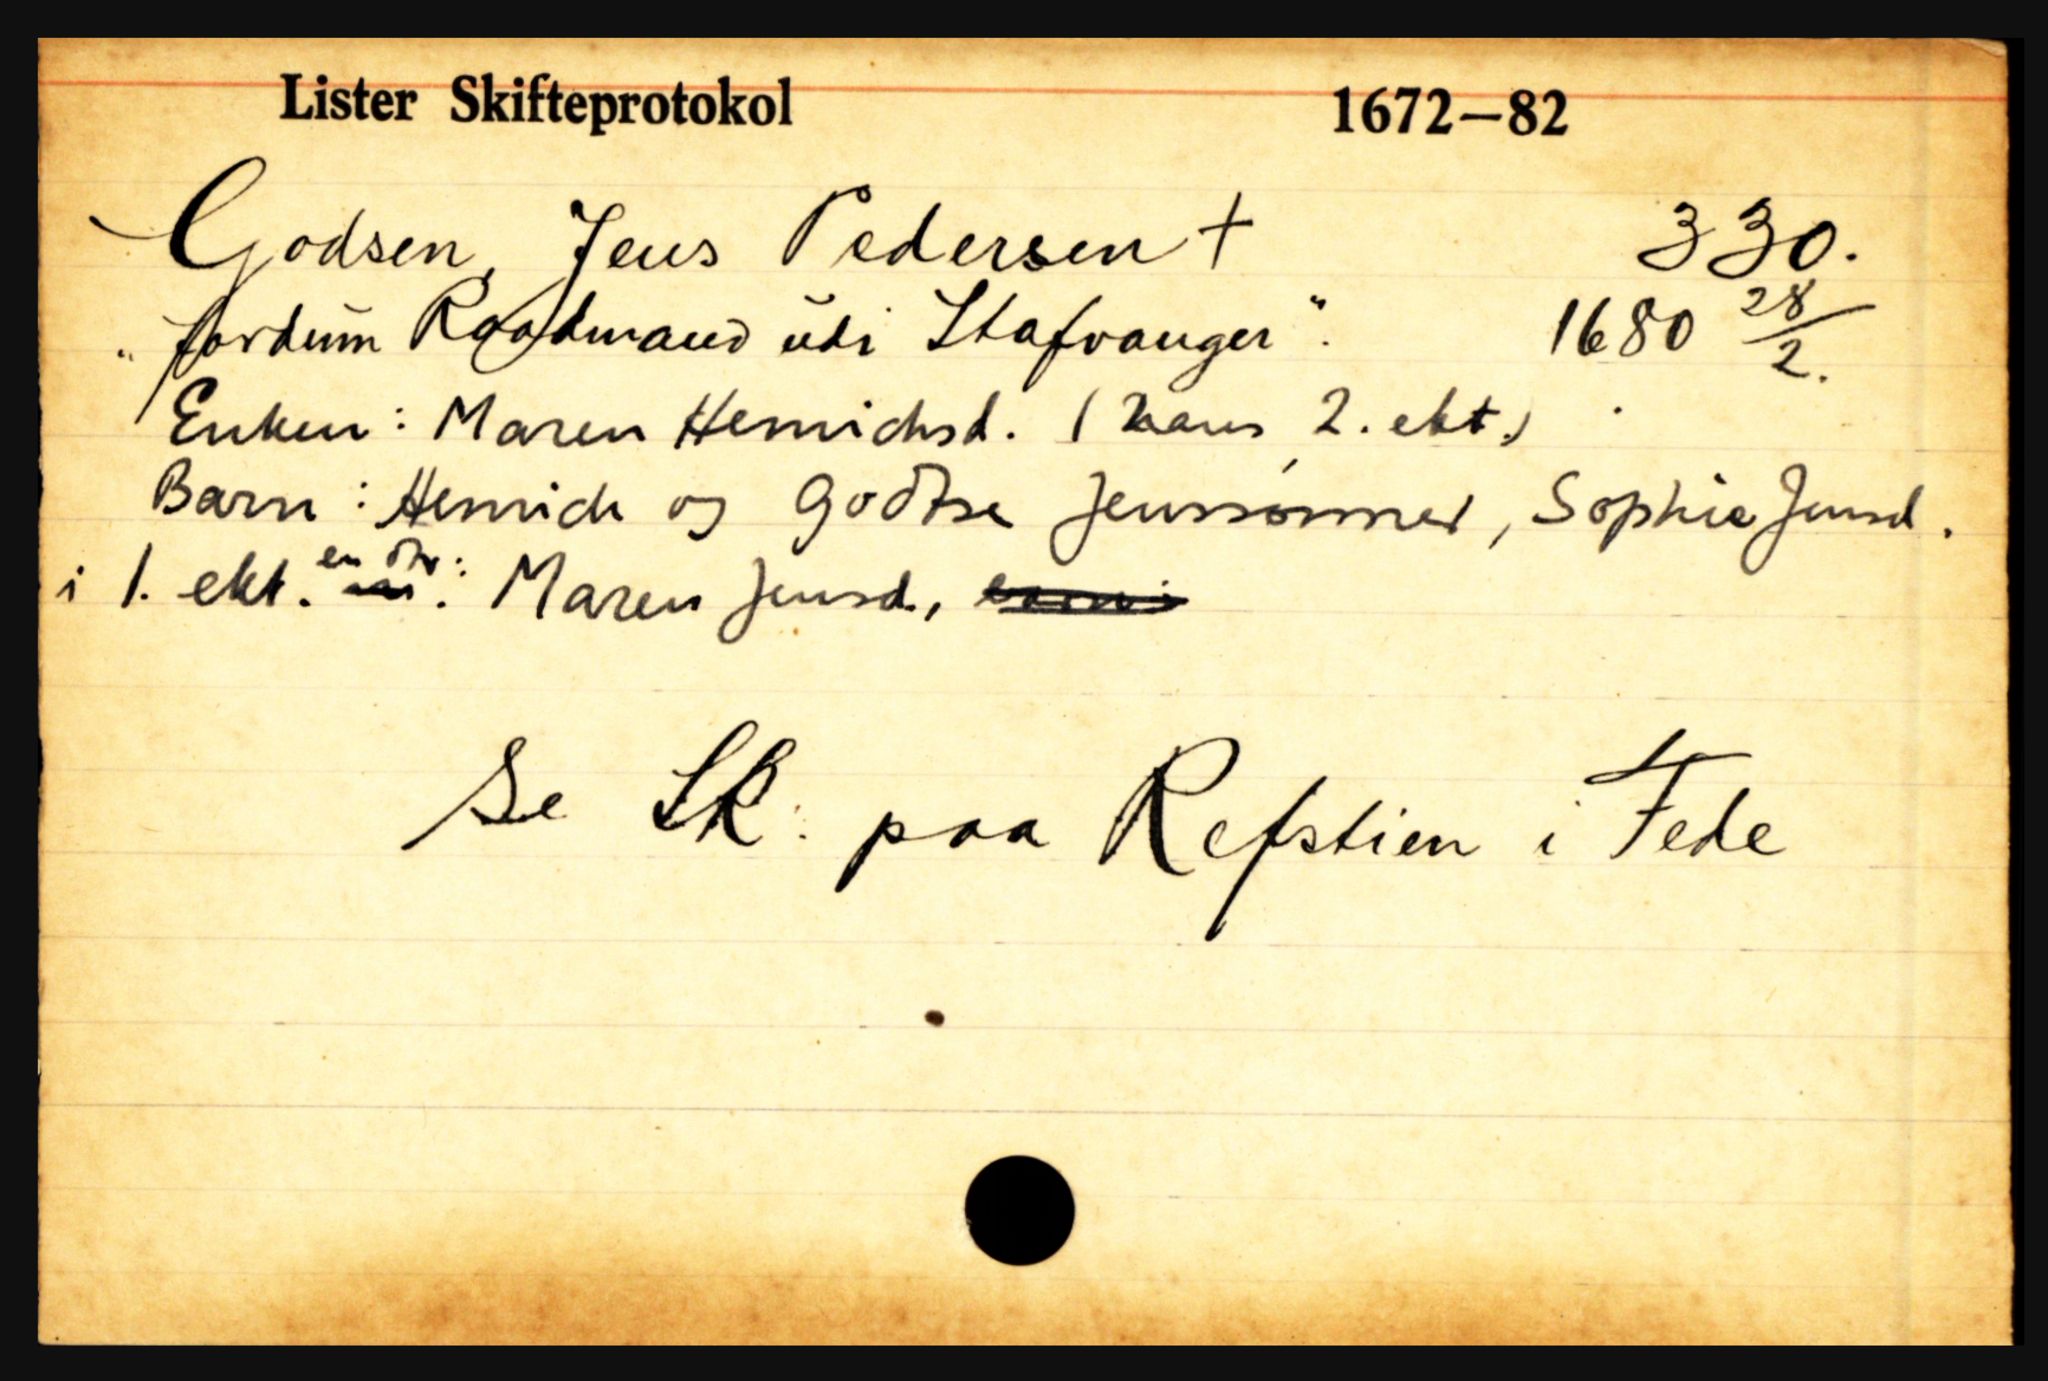 Lister Skifteprotokol 1672—82
Godsen, Jens Pedersen † 330.
„fordum Raadmand udi Stafvanger". 1680 28/2.
Enken: Maren Henrichsd. (hans 2. ekt.)
Barn: Henrich og Godtse Jenssønner, Sophie Jensd.
i 1. ekt. en dtr: Maren Jensd.,
Se SK: paa Refstien i Fede